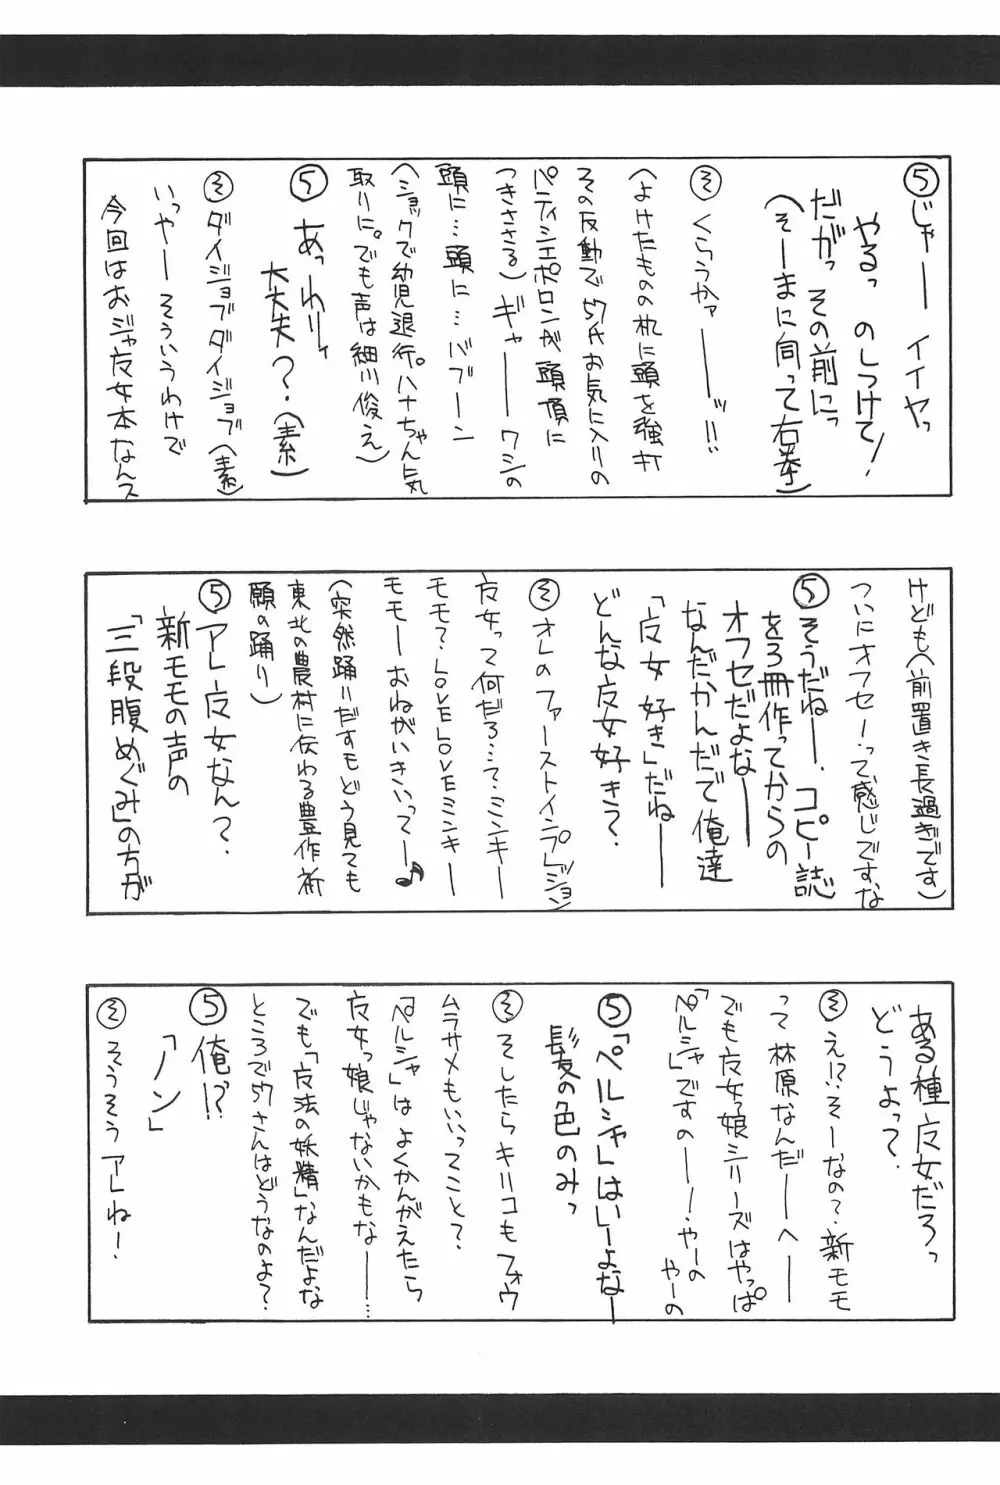 ⑤じゃー イイヤっ
やるっ のしつけて!
だがっ その前にっ
(そーまに向って右拳)
㋞くらうかァーーッ!!
(よけたものの机に頭を強打
その反動で57氏お気に入りの
パティシエポロンが頭頂に
つきささる)ギャーーワシの
頭に…頭に…バブーン
(ショックで幼児退行。ハナちゃん気
取りに。でも声は細川俊え)
⑤あっわりィ
大丈夫?(素)
㋞ダイジョブダイジョブ(素)
いっやーそういうわけで
今回はおジャ女本なんス
けども(前置き長過ぎです)
ついにオフセー!って感じですな
⑤そうだねー、コピー誌
を3冊作ってからの
オフセだよなー
なんだかんだで俺達
「女好き」だねー
どんな女好き?
㋞オレのファーストインプレジョン
女って何だろ…?ミンキー
モモ?LOVELOVEミンキー
モモーおねがいきいってー♪
(突然踊りだすもどう見ても
東北の農村に伝わる豊作祈
願の踊り)
⑤アレ女なん?
新モモの声の
「三段腹めぐみ」の方が
ある種女だろっ
どうよって?
㋞えっ!?そーなの?新モモ
って林原なんだーへー
でも女っ娘シリーズはやっぱ
「ペルシャ」ですのー!やーの
やーの
⑤「ペルシャ」はいーよなー
髪の色のみっ
㋞そしたらキリコもフォウ
ムラサメもいいってこと?
「ペルシャ」はよくかんがえたら
女っ娘じゃないかもなー…
でも「法の妖精」なんだよな
ところで57さんはどうなのよ?
⑤俺!?
「ノン」
㋞そうそうアレね!